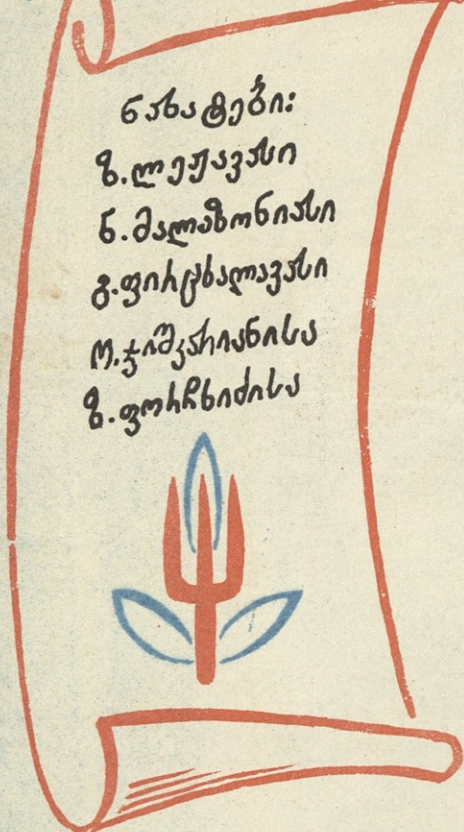 ნახატები:
ზ.ლეჟავასი
ნ.მალაზონიასი
გ.ფირცხალავასი
ო.ჯიშკარიანისა
ზ.ფორჩხიძისა